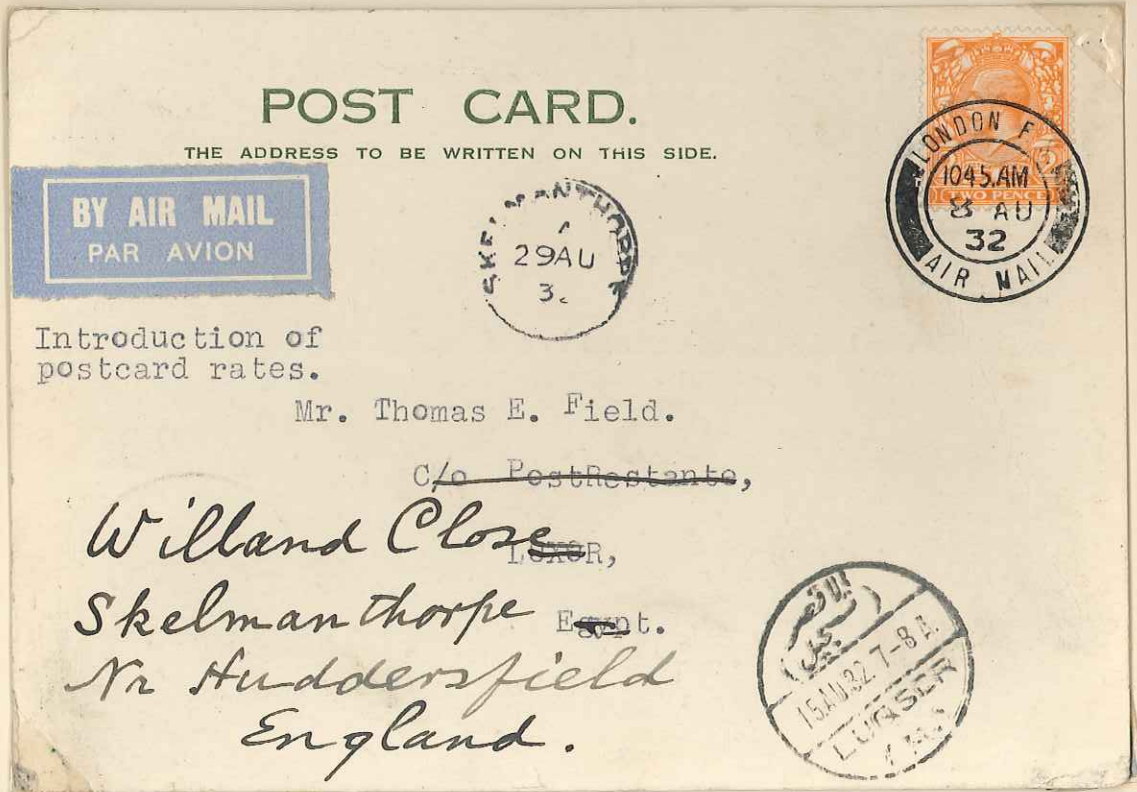 POST CARD.
THE ADDRESS TO BE WRITTEN ON THIS SIDE.
BY AIR MAIL
PAR AVION
LONDON F
10 45. AM
8 AU
32
AIR MAIL
TWO PENCE
SKELMANTHORPE
29 AU
Introduction of
postcard rates.
Mr. Thomas E. Field.
C/o PostRestante,
LUXOR,
Egypt.
Willand Close
Skelmanthorpe
Nr Huddersfield
England.
15 AU. 32. 7-8 A.
LUQSER